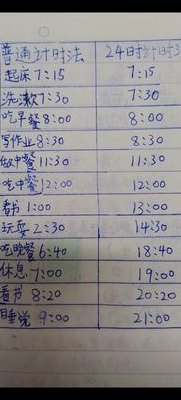 普通计时法 24时计时法
起床7:15 7:15
洗漱7:30 7:30
吃早餐8:00 8:00
写作业8:30 8:30
做中餐11:30 11:30
吃中餐12:00 12:00
看书1:00 13:00
玩耍2:30 14:30
吃晚餐6:40 18:40
休息7:00 19:00
看书8:20 20:20
睡觉9:00 21:00